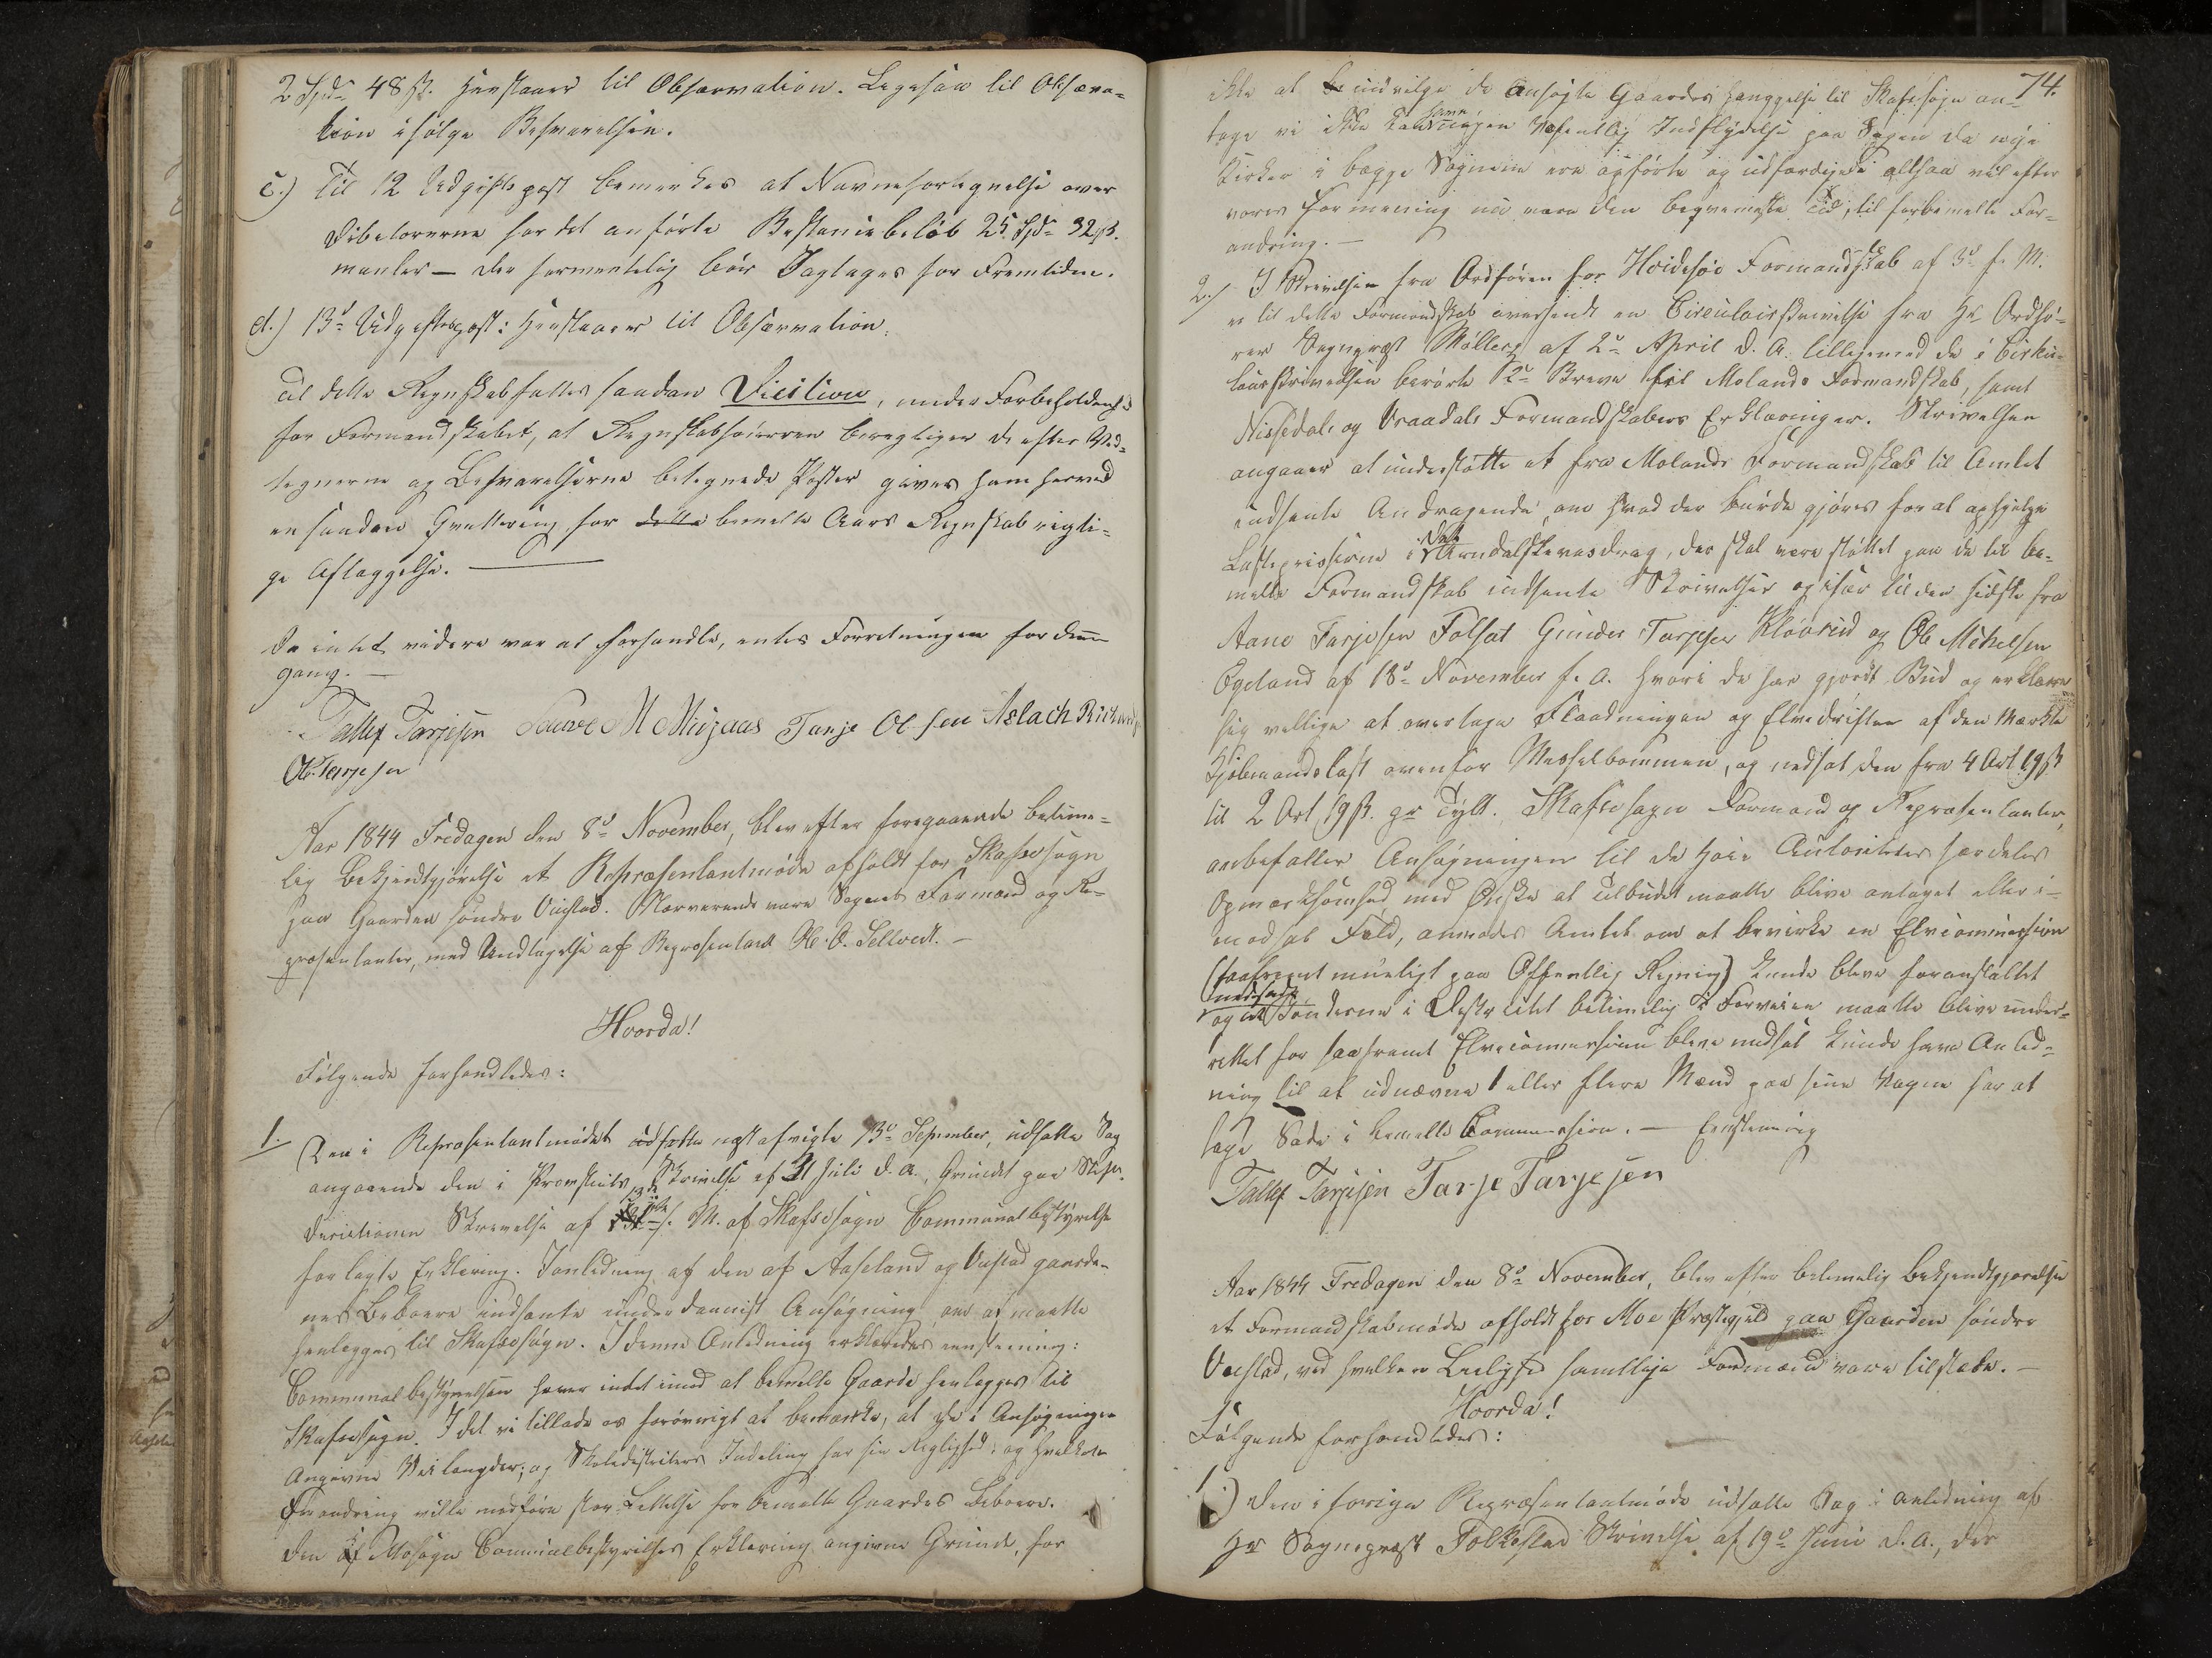 2 Spd 48 ß. henstaaer til Observation. Ligesaa til Observa=
tion ifølge Besvarelsen.
c.) Til 12 Udgifts post bemerkes at Navnefortegnelse over
Debitorerne for det anførte Restancebeløb 25 Spd 32 ß.
mangler — der formentelig bør Iagtages for Fremtiden.
d.) 13d Udgiftspost: henstaaer til Observation.
Til dette Regnskab fattes saadan Dicition, under Forbeholdenhed
for Formandskabet, at Regnskabsføreren berigtiger de efter Ved=
tegnerne og Besvarelserne betegnede Poster gives ham herved
en saadan Qvittering for dette bemelte Aars Regnskab rigti=
ge Aflæggelse.
Da intet videre var at forhandle, entes Forretningen for denne
gang. —
Tallef Tarjesen Sauve M Midjaas Tarje Olsen Aslach Richard
Ole Terjesen
Aar 1844 Fredagen den 8d November, blev efter foregaaende betime=
lig Bekjendtgjørelse et Repræsentantmøde afholdt for Skafsesogn
paa Gaarden søndre Vistad. Nærverende vare Sognets Formænd og Re=
præsentanter, med Undtagelse af Repræsentant Ole O. Selvedt. —
Hvorda!
Følgende forhandledes:
1. Den i Repræsentantmødet næst afvigte 13d September, udsatte Sag
angaaende den i Provstiets Skrivelse af 31 Juli d.a., Grundet paa Stifts
directionens Skrivelse af f. M. af Skafsesogn Communalbestyrelse
forlagte Erklæring. I anledning af den af Aaseland og Vistad gaarde=
nes Beboere indsente underdanigst Ansøgning om at maatte
henlægges til Skafsesogn. I denne Anledning erklæredes eenstemmig:
Communalbestyrelsen haver intet imod at bemelte Gaarde henlægges til
Skafsesogn. I det vi tillade os forøvrigt at bemærke, at de i Ansøgningen
Angivne Vei længder, og Skoledistricters Indeling har sin Rigtighed, og hvilken
Forandring ville medføre stor Lettelse for bemelte Gaardes Beboere.
Den af Mosogns Communalbestyrelses Erklæring angivne Grunde, for
74.
ikke at indvilge de Ansøgte Gaardes henlæggelse til Skafsesogn an=
tage vi ikke have nogen væsentlig Indflydelse paa Sagen da nye
Kirker i begge Sognene ere opførte og udferdigede altsaa vil efter
vores formening nu være den beqvemeste Tid, til forbemelte For=
andring. —
2.) I Skrivelsen fra Ordføren for Hvidesøe Formandskab af 3d f. M.
er til dette Formandskab oversendt en Circulairskrivelse fra Hr Ordfø=
rer Sognepræst Møller af 2d April d. A. tilligemed de i Cirku=
lairskrivelsen berørte 2de Breve fra Molands Formandskab, samt
Nissedals og Vraadals Formandskabers Erklæringer. Skrivelsen
angaaer at understøtte et fra Molands Formandskab til Amtet
indsente Andragende om hvad der burde gjøres for at ophjelpe
Lastepriserne i det Arndalskevasdrag, der skal være støttet paa de til be=
melte Formandskab indsente Skrivelser og især til den sidste fra
Aane Tarjesen Folsat Gunder Tarjesen Kleverud og Ole Mikelsen
Ogeland af 18d November f. A. hvori de har gjordt Bud og erklære
sig villige at overtage Flaadningen og Elvedriften af den Mærkte
Kjøbmandslast ovenfor Messelbommen, og nedsat den fra 4 Ort 19 ß
til 2 Ort 19 ß. pr Tylt. Skafse sogns Formænd og Repræsentanter,
anbefaller Ansøgningen til de høie Autoriteter særdeles
Opmærksomhed med Ønske at Tilbudet maatte blive antaget eller i=
modsat Fald, anmodes Amtet om at bevirke en Elvcommission
(saafremt mueligt paa Offentlig Regning) kunde blive foranstaltet
nedsadt
og at Bønderne i Destrictet betimelig i Forveien maatte blive under=
rettet for saafremt Elvecommissionen bleve nedsat kunde have Anled=
ning til at udnævne 1 eller flere Mænd paa sine Vegne for at
tage Sæde i bemelte Commission. — Eenstemmig
Tallef Tarjesen Tarje Tarjesen
Aar 1844 Fredagen den 8d November, blev efter betimelig bekjendtgjørelse
et Formandskabmøde afholdt for Moe Præstegjeld paa Gaarden søndre
Vistad, ved hvilken Leilighed samtlige Formænd vare tilstede. —
Hvorda!
Følgende forhandledes:
1.) Den i forrige Repræsentantmøde udsatte Sag i anledning af
Hr Sognepræst Folkestad Skrivelse af 19d Juni d. A., der